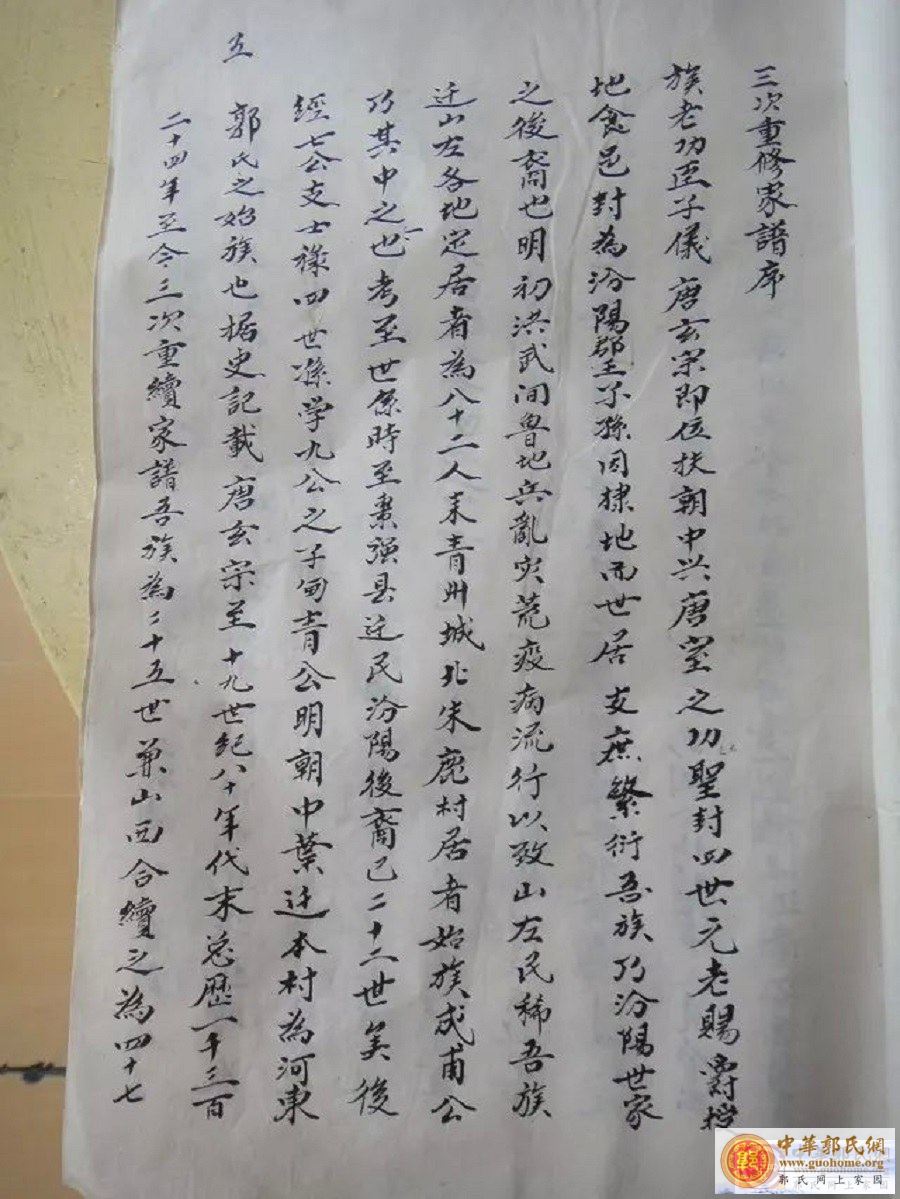 三次重修家譜序
族老功臣子儀唐玄宗即位扶朝中兴唐室之功聖封四世元老賜爵授
地食邑封為汾陽郡王子孫因隸地而世居支庶繁衍吾族乃汾陽世家
之後裔也明初洪武间魯地兵亂灾荒疫病流行以致山左民稀吾族
迁山左各地定居者為八十二人来青州城北朱鹿村居者始族成甫公
乃其中之一也考至世係時至棗强县迁民汾陽後裔已二十二世矣後
經七公支士禄四世孫学九公之子甸青公明朝中葉迁本村為河東
郭氏之始族也据史記載唐玄宗至十九世紀八十年代末总歷一千三百
二十四年至今三次重續家譜吾族為二十五世兼山西合續之為四十七
五
中華郭氏網
www.guohome.org
郭氏网上家园